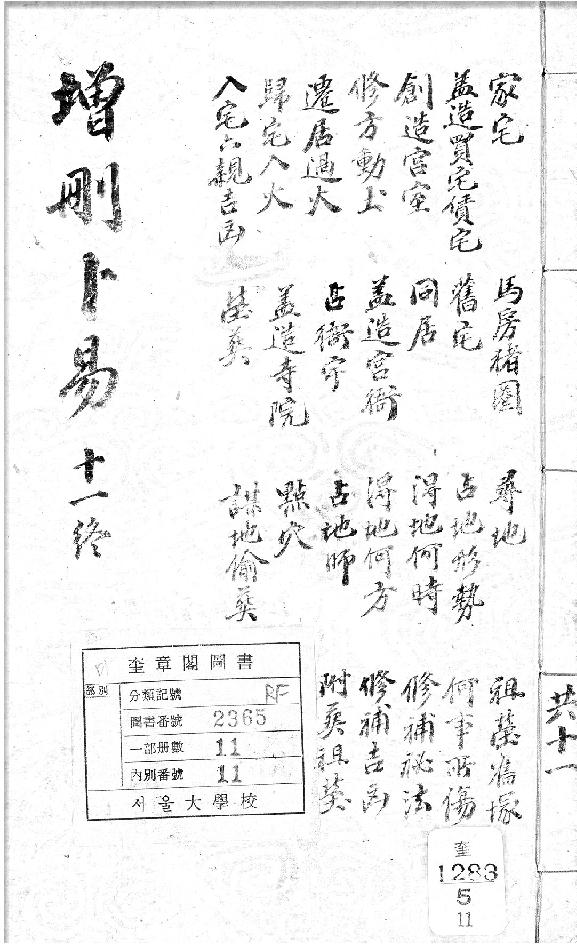 家宅
盖造買宅賃宅
創造宮室
修方動土
遷居過火
歸宅入火
入宅六親吉凶
馬房猪圈
舊宅
同居
盖造宮衙
占衙宇
盖造寺院
塋葬
尋地
占地形勢
得地何時
得地何方
占地師
點穴
謀地偷葬
祖塋舊塚
何事所傷
修補秘法
修補吉凶
附葬祖塋
增刪卜易 十一終
共十一
奎章閣圖書
部別
分類記號 RF
圖書番號 2365
一部册數 11
內別番號 11
서울大學校
奎
1283
5
11